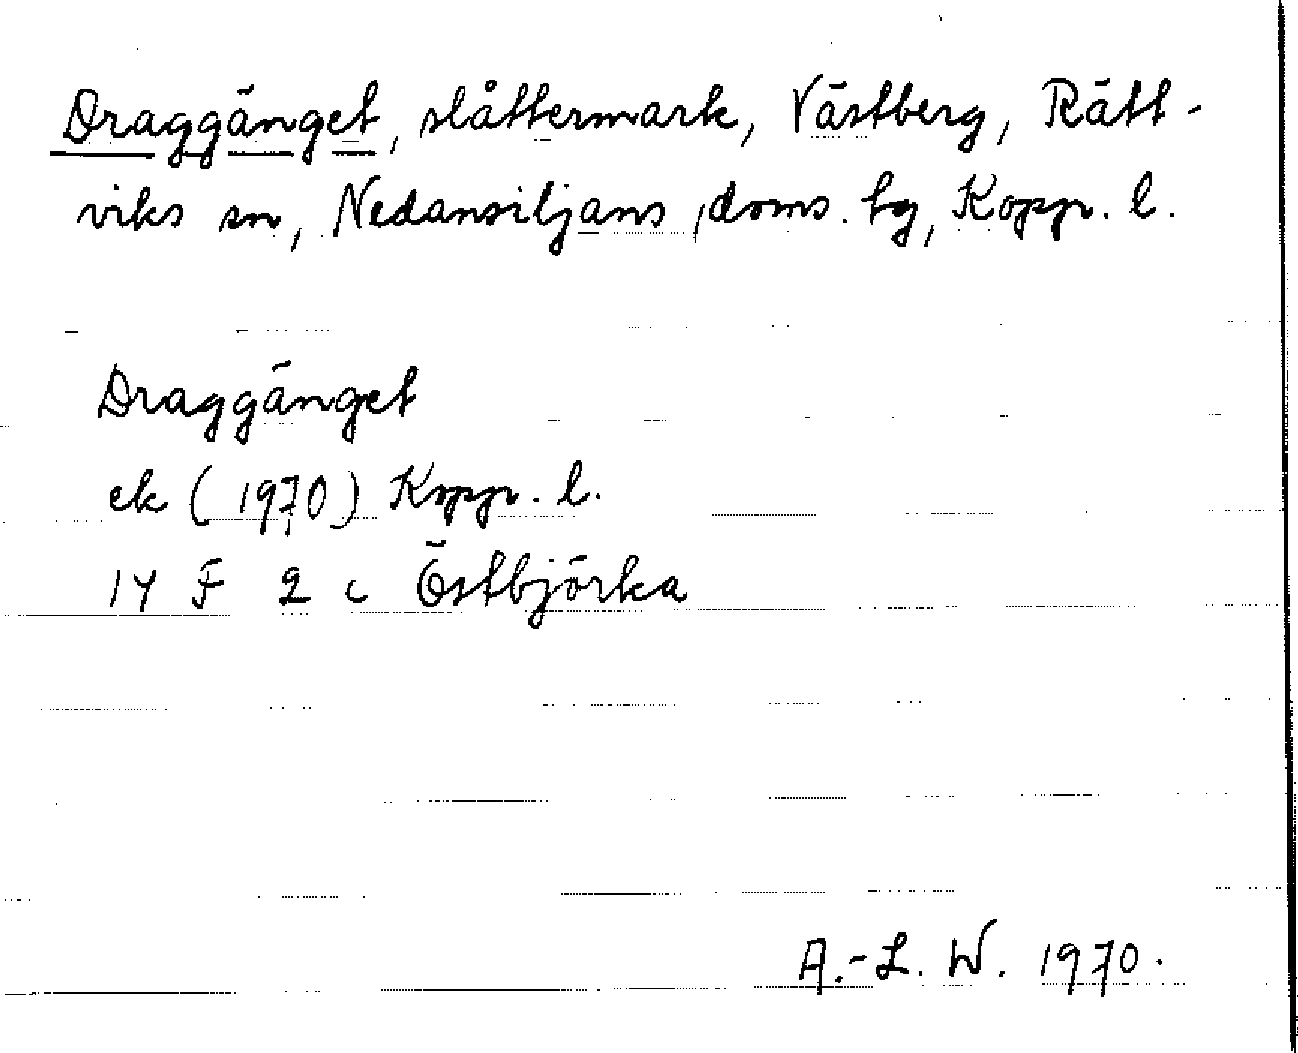 Draggänget, slåttermark, Västberg, Rätt-
viks sn, Nedansiljans doms. hg, Kopp. l.
Draggänget
ek (1970) Kopp. l.
14 F 2 c Östbjörka
A.-L. W. 1970.